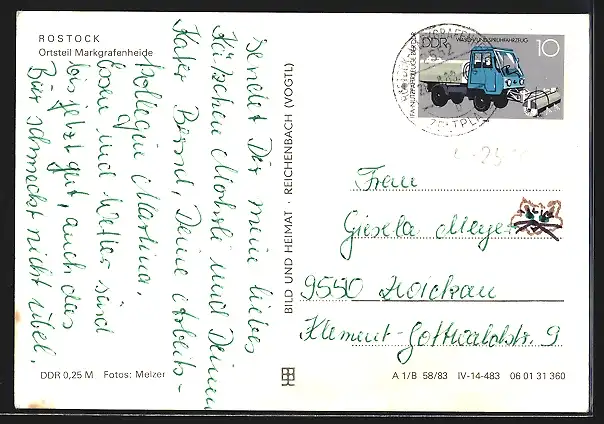 ROSTOCK
Ortsteil Markgrafenheide
sendet Dir mein liebes
Kätzchen und Deinem
Kater Bernd, Deine Arbeits-
kollegin Martina.
Essen und Wetter sind
bis jetzt gut, auch das
Bier schmeckt nicht übel.
DDR 0,25 M Fotos: Melzer
BILD UND HEIMAT · REICHENBACH (VOGTL)
DDR
WASCH- UND SPRÜHFAHRZEUG
10
IFA-NUTZFAHRZEUGE DER DDR
Frau
Gisela Meyer
9550 Zwickau
Klement-Gottwaldstr. 9
A 1/B 58/83 IV-14-483 06 01 31 360